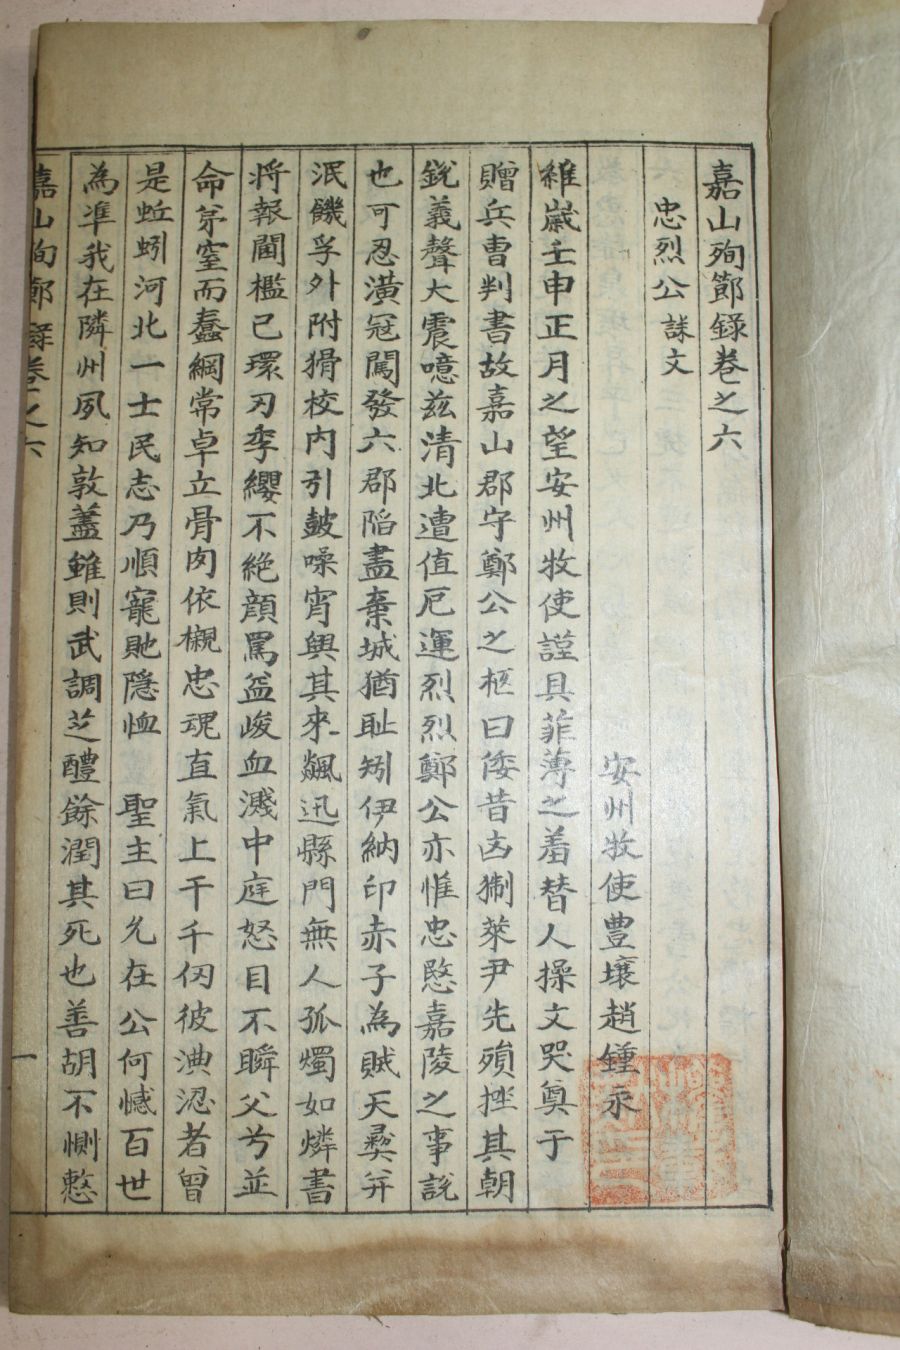 嘉山殉節錄卷之六
忠烈公誄文
安州牧使豊壤趙鍾永
維歲壬申正月之望安州牧使謹具菲薄之羞替人操文哭奠于
贈兵曹判書故嘉山郡守鄭公之柩曰倭昔凶猘萊尹先殞挫其朝
銳義聲大震噫玆清北遭值厄運烈烈鄭公亦惟忠愍嘉陵之事說
也可忍潢寇闖發六郡陷盡棄城猶耻矧伊納印赤子為賊天彛並
泯饑孚外附猾校内引鼓噪宵興其來飆迅縣門無人孤燭如燐書
將報閫檻已環刃季纓不絶顔罵益峻血濺中庭怒目不瞬父兮並
命芽室而蠢綱常卓立骨肉依櫬忠魂直氣上干千仞彼淟涊者曾
是蚯蚓河北一士民志乃順寵貤隱恤 聖主曰允在公何憾百世
為凖我在隣州夙知敦藎雖則武調芝醴餘潤其死也善胡不惻憖
嘉山殉節錄卷之六
一